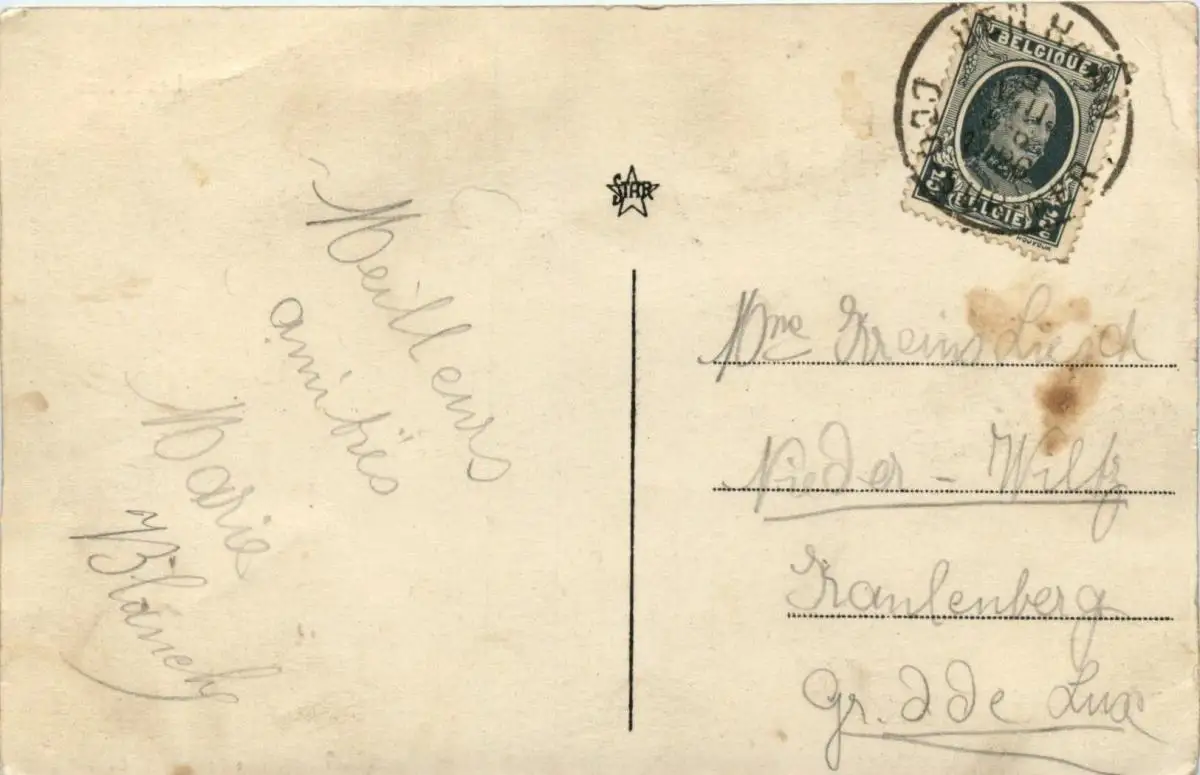 Meilleurs
amitiés
Marie
Blanch
STAR
BELGIQUE
BELGIE
HOUYOUX
Mme Kreins Liesch
Nieder - Wiltz
Kaulenberg
Gr. d. de Lux